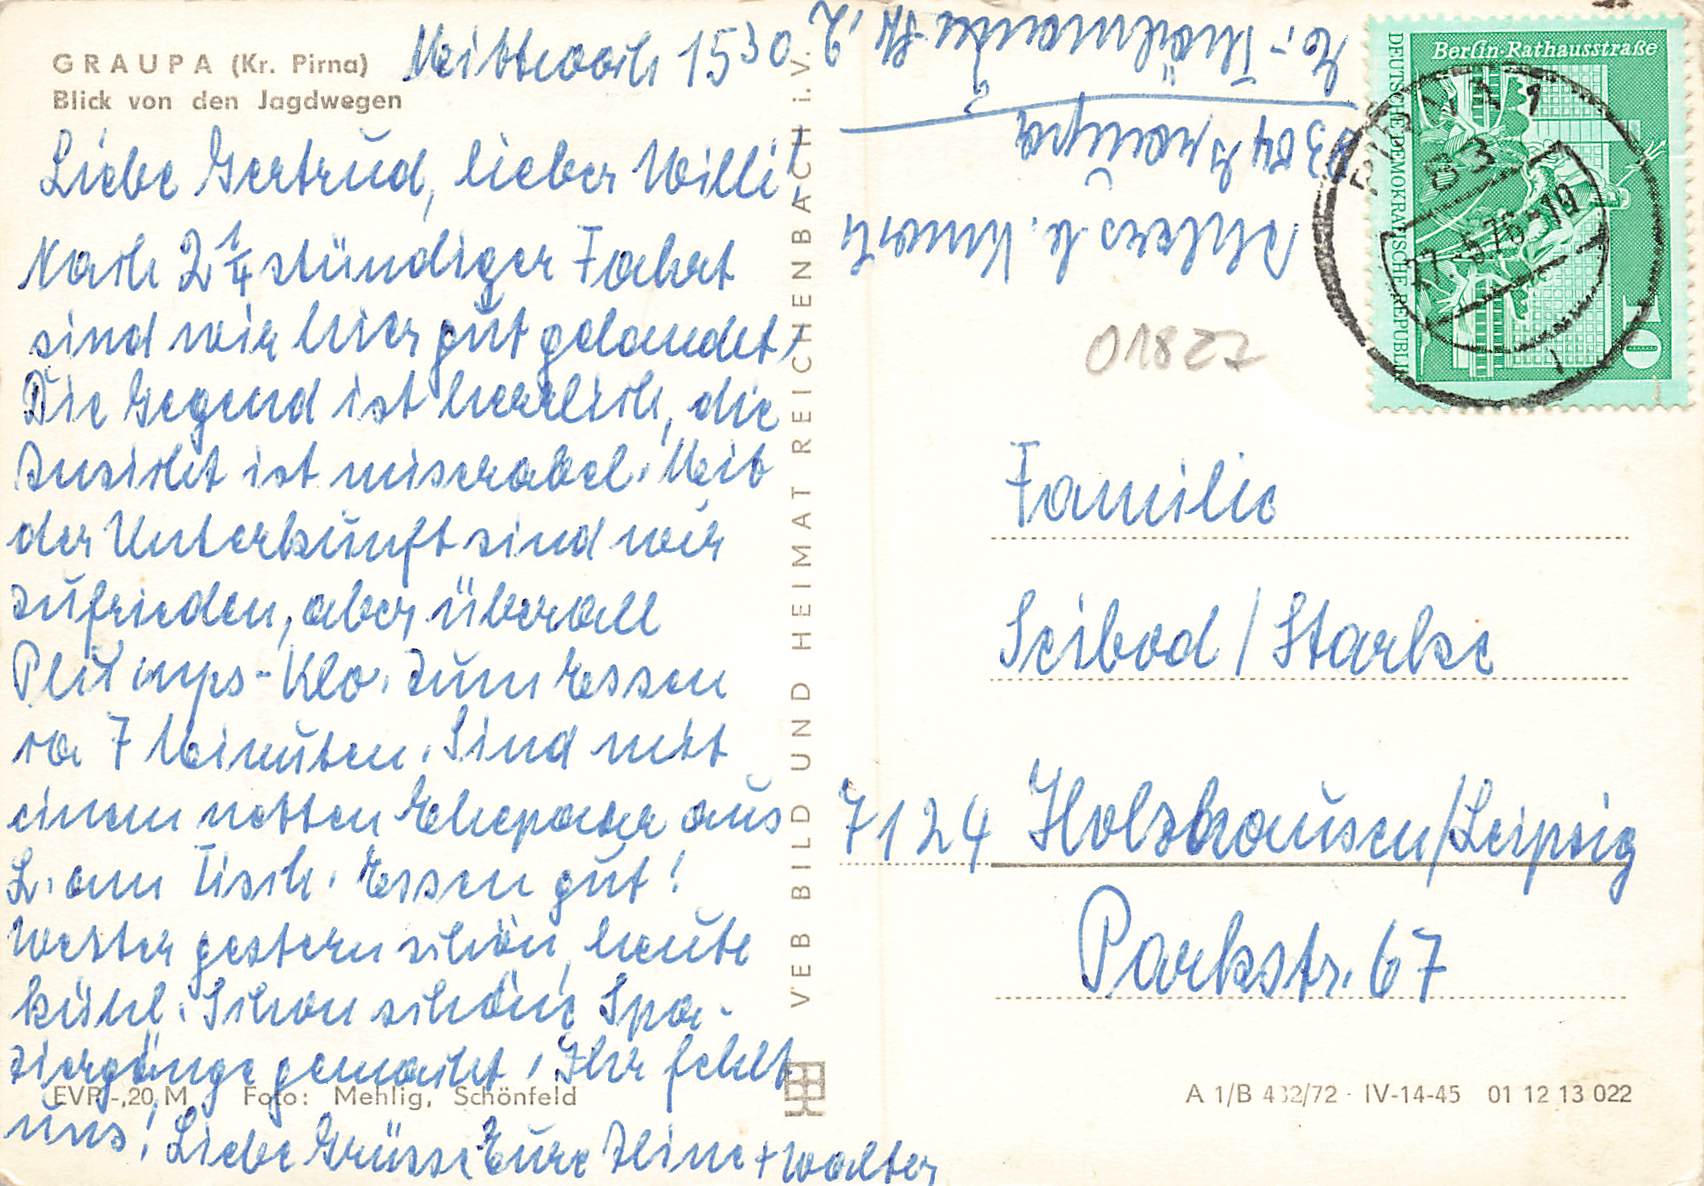 GRAUPA (Kr. Pirna)
Blick von den Jagdwegen
Mittwoch 15³⁰.
Liebe Gertrud, lieber Willi!
Nach 2 1/4 stündiger Fahrt
sind wir hier gut gelandet,
Die Gegend ist herrlich, die
Zusicht ist miserabel. Mit
der Unterkunft sind wir
zufrieden, aber überall
Plumps-Klo. Zum Essen
ca 7 Minuten. Sind mit
einem netten Ehepaar aus
L. am Tisch. Essen gut!
Wetter gestern schön, heute
kühl. Schon schöne Spa-
ziergänge gemacht, Ihr fehlt
uns! Liebe Grüsse Eure Iline + Walter
EVP -,20 M Foto: Mehlig, Schönfeld
VEB BILD UND HEIMAT REICHENBACH i. V.
b.
8304 Graupa
Str. 2
Berlin-Rathausstraße
DEUTSCHE DEMOKRATISCHE REPUBLIK
10
PIRNA 1
83
27.-5.76-10
01827
Familie
Seibod / Starke
7124 Holzhausen/Leipzig
Parkstr. 67
A 1/B 432/72 · IV-14-45 01 12 13 022